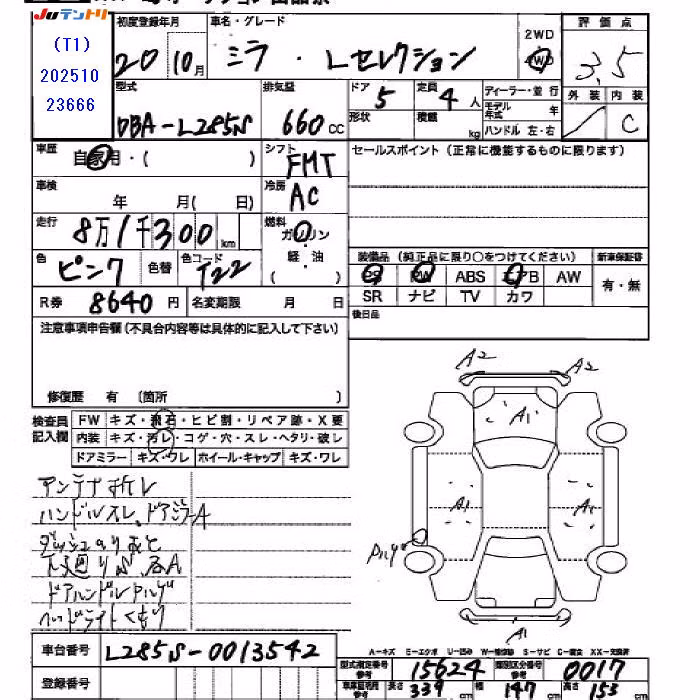 Juテントリ
(T1)
202510
23666
初度登録年月 車名・グレード 2WD 評価点
20 10月 ミラ・Lセレクション 4WD 3.5
外装 内装
C
型式 排気量 ドア 定員 ディーラー・並行
DBA-L285S 660cc 5 4人 モデル年式 年
形状 積載 kg ハンドル 左・右
車歴 自家用・( ) シフト FMT セールスポイント(正常に機能するものに限ります)
車検 年 月( 日) 冷房 AC
走行 8万1千300km 燃料 ガソリン
軽・油
色 ピンク 色替 色コード T22 装備品(純正品に限り○をつけてください) 新車保証書
PS PW ABS エアB AW 有・無
R券 8640円 名変期限 月 日 SR ナビ TV カワ
注意事項申告欄(不具合内容等は具体的に記入して下さい) 後日品
修復歴 有 (箇所 )
検査員記入欄 FW キズ・飛石・ヒビ割・リペア跡・X要
内装 キズ・汚レ・コゲ・穴・スレ・ヘタリ・破レ
ドアミラー キズ・ワレ ホイール・キャップ キズ・ワレ
A2 A2
A1
A1 A1
A1
アンテナ折レ
ハンドルスレ、ドアミラーA
ダッシュのりあと
下廻りS、各A
ドアハンドルハゲ
ヘッドライトくもり
車台番号 L285S-0013542
A-キズ E-エクボ U-凹み W-補修跡 S-サビ C-腐食 XX-交換済
型式指定番号 参考 15624 類別区分番号 参考 0017
登録番号 車庫証明用参考 長さ 339cm 幅 147cm 高さ 153cm